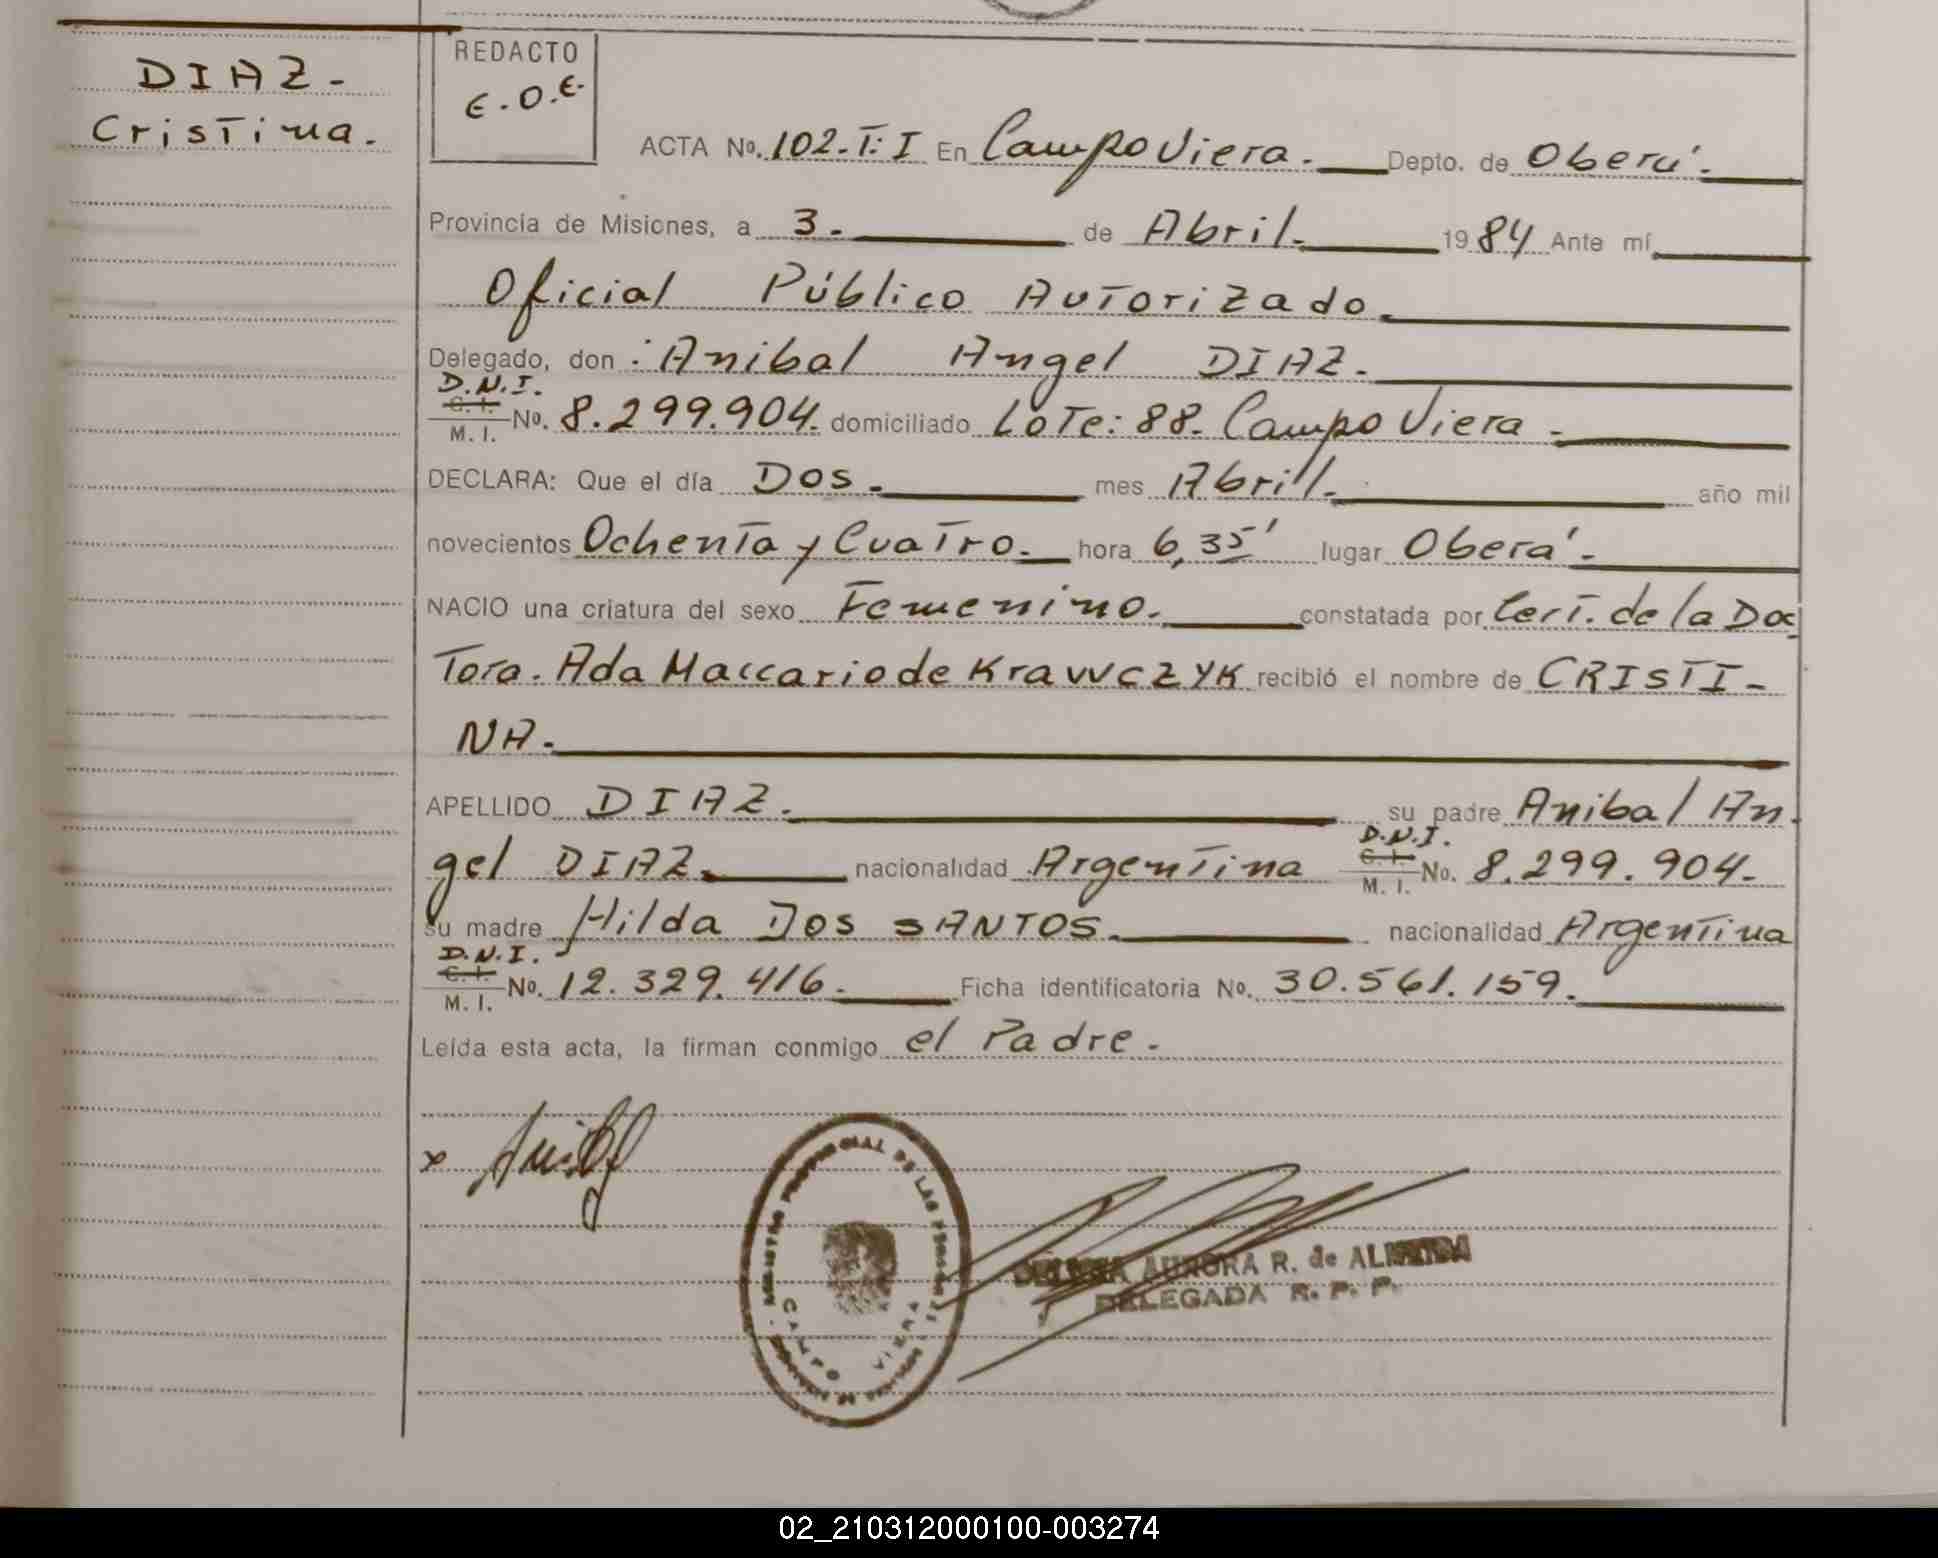 DIAZ-
Cristina.
REDACTO
E.O.E.
ACTA No. 102.T: I En Campo Viera. Depto. de Oberá.
Provincia de Misiones, a 3. de Abril. 1984 Ante mí
Oficial Público Autorizado.
Delegado, don : Anibal Angel DIAZ.
D.N.I.
C. I.
M. I. No. 8.299.904. domiciliado Lote: 88. Campo Viera.
DECLARA: Que el día Dos. mes Abrill. año mil
novecientos Ochenta y Cuatro. hora 6,35' lugar Oberá.
NACIO una criatura del sexo Femenino. constatada por Cert. de la Doc
Tora. Ada Maccario de KRAWCZYK recibió el nombre de CRISTI-
NA.
APELLIDO DIAZ. su padre Anibal An.
gel DIAZ. nacionalidad Argentina D.N.I. C. I. M. I. No. 8.299.904.
su madre Hilda DOS SANTOS. nacionalidad Argentina
D.N.I.
C. I.
M. I. No. 12.329.416. Ficha identificatoria No. 30.561.159.
Leída esta acta, la firman conmigo el Padre.
x
PROVINCIAL DE LAS
CAMPO VIERA
AURORA R. de ALMEIDA
DELEGADA R. P. P.
02_210312000100-003274